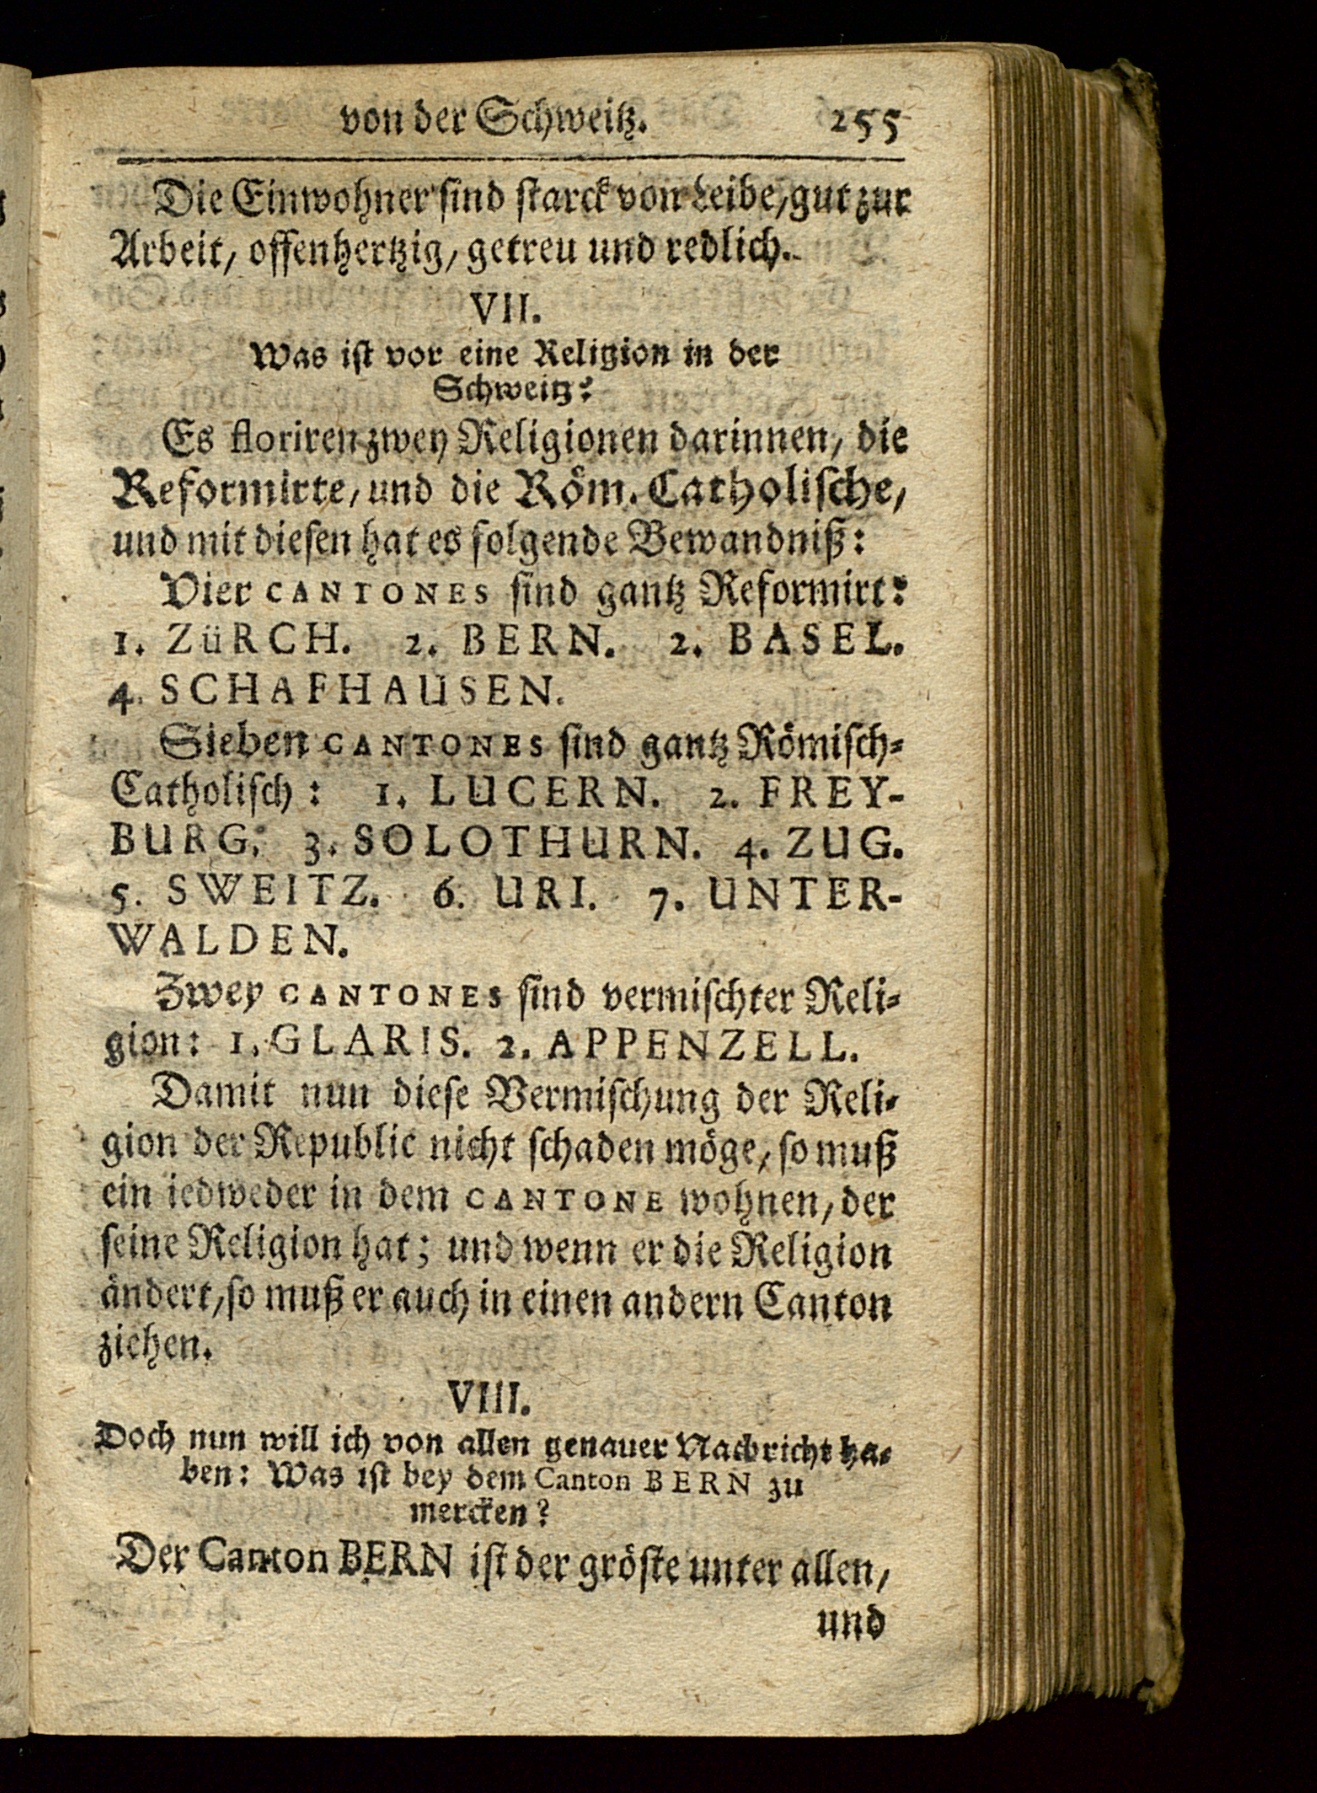 von der Schweitz. 255
Die Einwohner sind starck von Leibe, gut zur
Arbeit, offenhertzig, getreu und redlich.
VII.
Was ist vor eine Religion in der
Schweitz?
Es floriren zwey Religionen darinnen, die
Reformirte, und die Röm. Catholische,
und mit diesen hat es folgende Bewandniß:
Vier CANTONES sind gantz Reformirt:
1. ZüRCH. 2. BERN. 2. BASEL.
4. SCHAFHAUSEN.
Sieben CANTONES sind gantz Römisch-
Catholisch: 1. LUCERN. 2. FREY-
BURG. 3. SOLOTHURN. 4. ZUG.
5. SWEITZ. 6. URI. 7. UNTER-
WALDEN.
Zwey CANTONES sind vermischter Reli-
gion: 1. GLARIS. 2. APPENZELL.
Damit nun diese Vermischung der Reli-
gion der Republic nicht schaden möge, so muß
ein iedweder in dem CANTONE wohnen, der
seine Religion hat; und wenn er die Religion
ändert, so muß er auch in einen andern Canton
ziehen.
VIII.
Doch nun will ich von allen genauer Nachricht ha-
ben: Was ist bey dem Canton BERN zu
mercken?
Der Canton BERN ist der gröste unter allen,
und